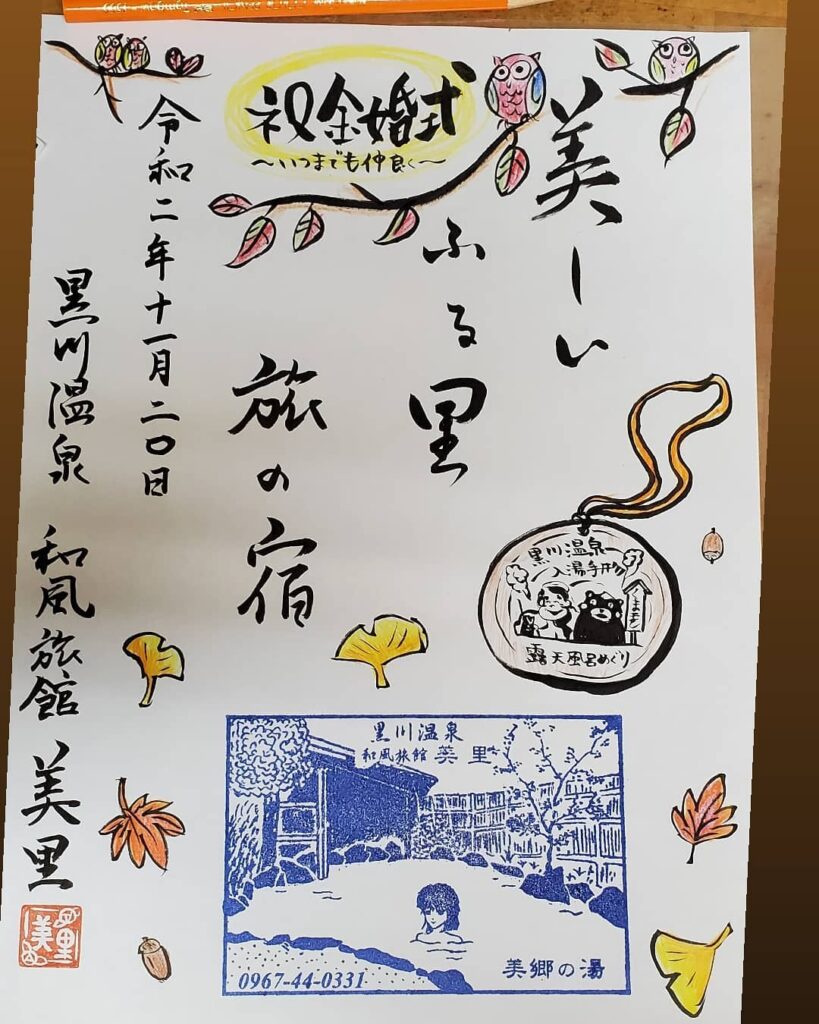 祝金婚式
〜いつまでも仲良く〜
美しい
ふる里
旅の宿
令和二年十一月二〇日
黒川温泉 和風旅館 美里
黒川温泉
入湯手形
くまモン
露天風呂めぐり
黒川温泉
和風旅館 美里
0967-44-0331
美郷の湯